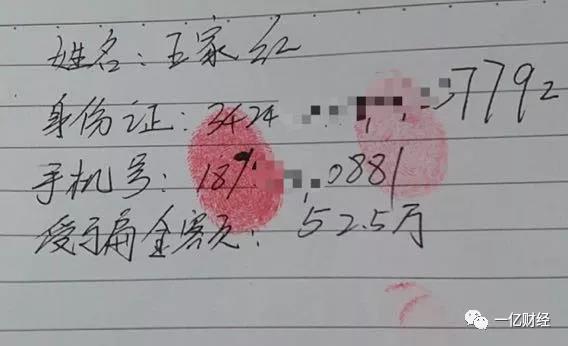 姓名：王家红
身份证：3424 7792
手机号：189 0881
受骗金额：52.5万
一亿财经